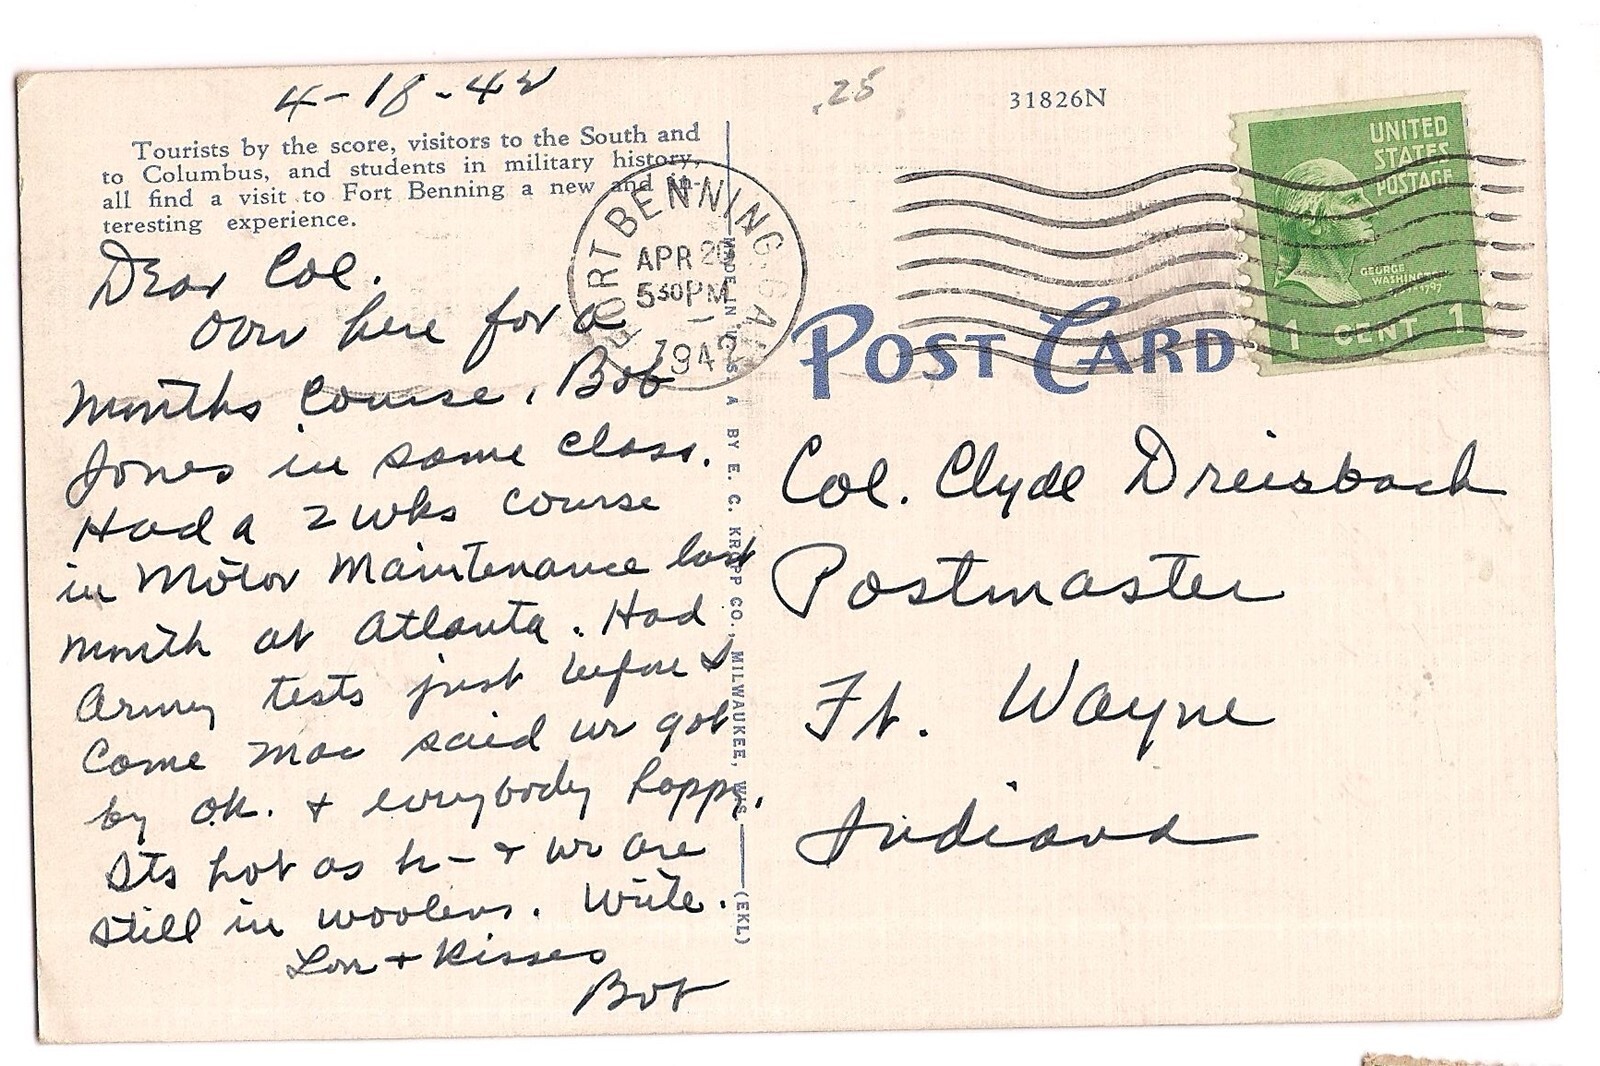 4-18-42
.25
31826N
Tourists by the score, visitors to the South and
to Columbus, and students in military history,
all find a visit to Fort Benning a new and in-
teresting experience.
FORT BENNING, GA.
APR 20
530PM
1942
UNITED
STATES
POSTAGE
GEORGE
WASHINGTON
1797
1 CENT 1
POST CARD
MADE IN U. S. A BY E. C. KROPP CO., MILWAUKEE, WIS. (EKL)
Dear Col.
here for a
months course. Bob
Jones in same class.
Had a 2 wks course
in Motor Maintenance last
month at Atlanta. Had
Army tests just before I
came Mac said we got
by ok. + everybody happy.
Its hot as h- + we are
still in woolens. Write.
Love + Kisses
Bob
Col. Clyde Dreisbach
Postmaster
Ft. Wayne
Indiana